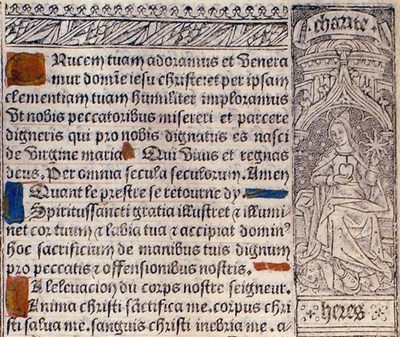 Rucem tuam adoramus et Venera
mur domīe iesu christe et per ipsam
clementiam tuam humiliter imploramus
Ut nobis peccatoribus misereri et parcere
digneris qui pro nobis dignatus es nasci
de virgine maria Qui Vivis et regnas
deus. Per omnia secula seculorum. Amen
Quant le prestre se retourne dy
Spiritussācti gratia illustret ⁊ illumi
net cor tuum ⁊ labia tua ⁊ accipiat domin᷒
hoc sacrificium de manibus tuis dignum
pro peccatis ⁊ offensionibus nostris.
A lelevacion du corps nostre seigneur.
Anima christi sāctifica me. corpus chri
sti salva me. sanguis christi inebria me. a-
charite
heres